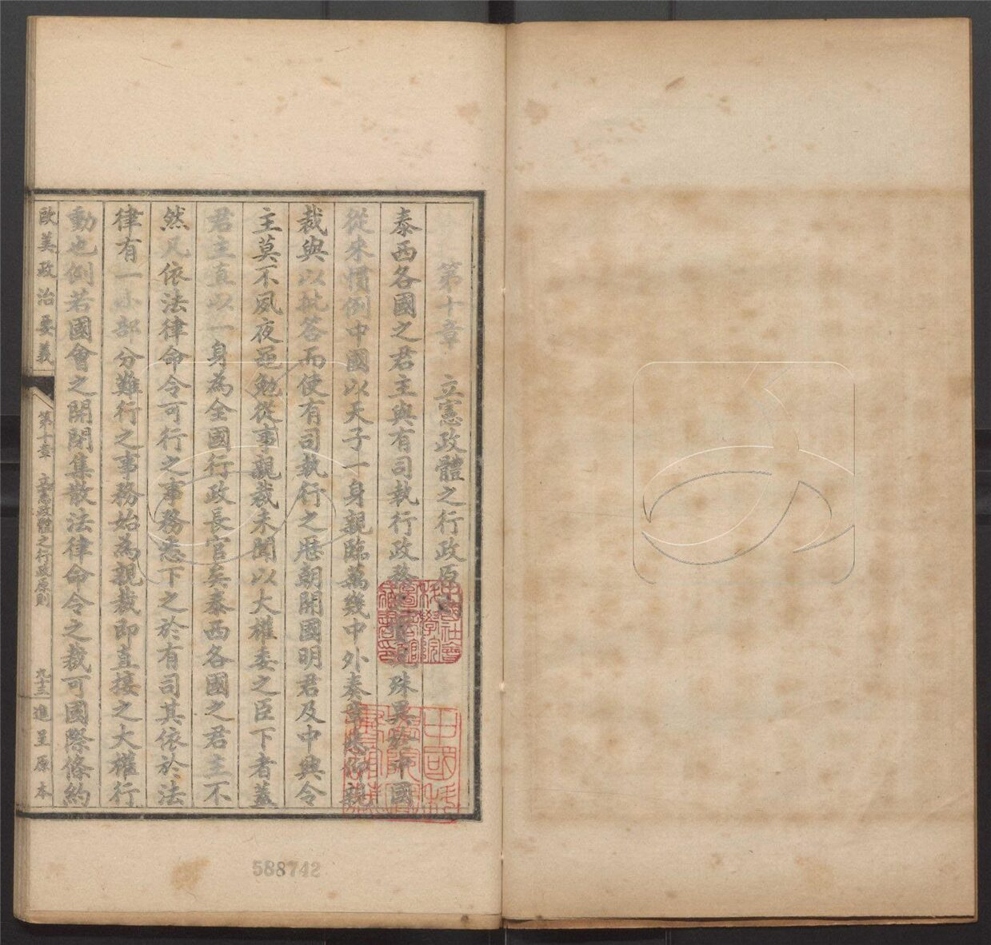 第十章　立憲政體之行政原
泰西各國之君主與有司執行政務殊異於中國
從來慣例中國以天子一身親臨萬幾中外奏章悉仰親
裁與以批答而使有司執行之歷朝開國明君及中興令
主莫不夙夜黽勉從事親裁未聞以大權委之臣下者蓋
君主直以一身為全國行政長官矣泰西各國之君主不
然凡依法律命令可行之事務悉下之於有司其依於法
律有一小部分難行之事務始為親裁即直接之大權行
動也例若國會之開閉集散法律命令之裁可國際條約
歐美政治要義
第十章　立憲政體之行政原則
九十三
進呈原本
588742